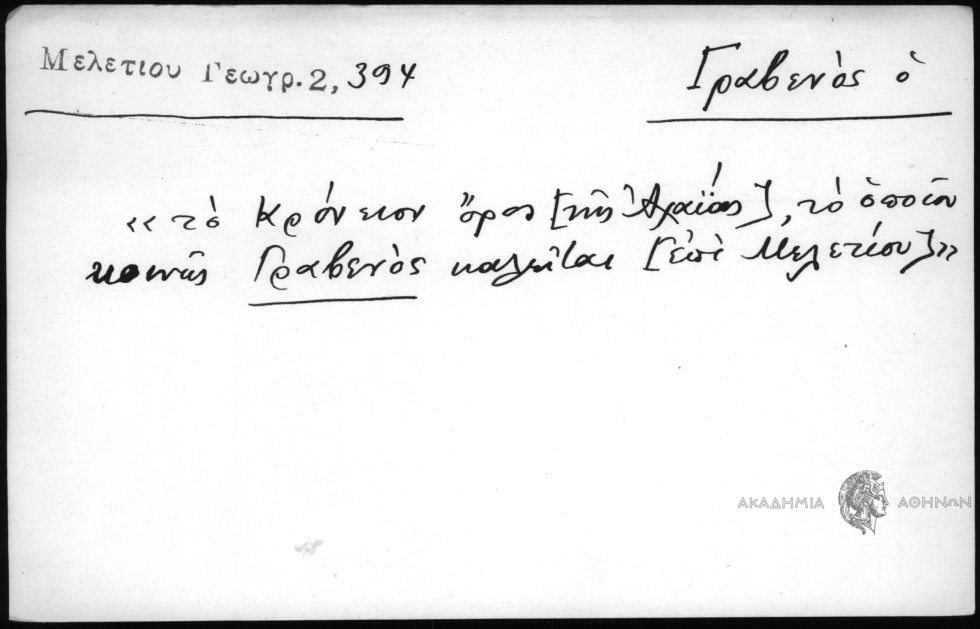 Μελετιου Γεωγρ. 2, 394
Γραβενὸς ὁ
«τὸ Κρόνειον ὄρος [τῆς Ἀχαΐας], τὸ ὁποῖον
κοινῶς Γραβενὸς καλεῖται [ἐπὶ Μελετίου]»
ΑΚΑΔΗΜΙΑ ΑΘΗΝΩΝ